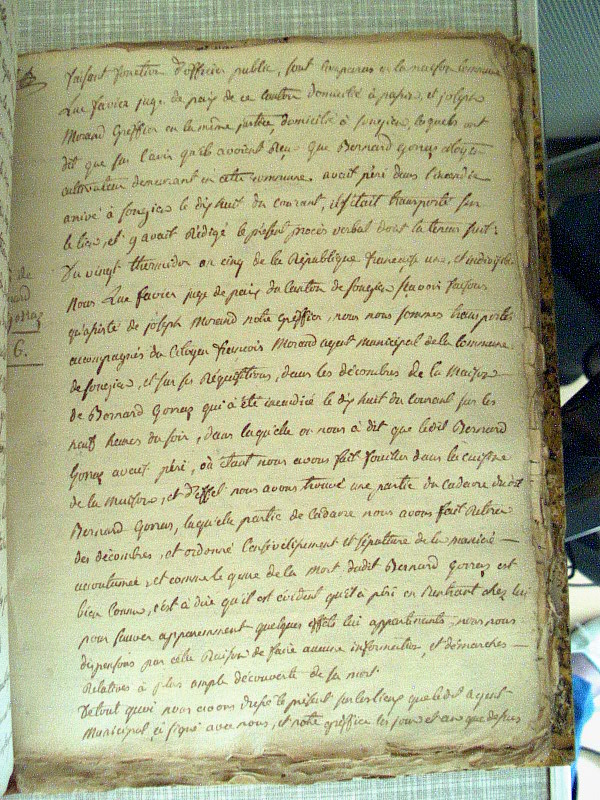 faisant fonction d'officier public, sont comparus en la maison commune
Luc favier juge de paix de ce canton domicilié à, et joseph
Morand Greffier en la même justice, domicilié à, lesquels ont
dit que sur l'avis qu'ils avoient Reçu que Bernard Gorraz
cultivateur demeurant en cette commune, avait péri dans l'incendie
arrivé à le dix huit du courant, ils s'étaient transporté sur
le lieu, et y avait Rédigé le présent procès verbal dont la teneur suit:
Du vingt thermidor an cinq de la République française une, et indivisible
Nous Luc favier juge de paix du Canton de sçavoir faisons
qu'assisté de joseph Morand notre Greffier, nous nous sommes transportés
accompagnés du Citoyen francois Morand agent municipal de la commune
de, et sur sa Réquisition, dans les décombres de la Maison
de Bernard Gorraz qui à été incendié le dix huit du courant sur les
neuf heures du soir, dans laquelle on nous à dit que ledit Bernard
Gorraz avait péri, où étant nous avons fait fouiller dans la cuisine
de la Maison, et d'effet nous avons trouvé une partie du cadavre dudit
Bernard Gorraz, laquelle partie de cadavre nous avons fait Retirer
des décombres, et ordonné l'ensevelissement et sépulture de la manière
accoutumée, et comme le genre de la Mort dudit Bernard Gorraz est
bien Connu, c'est à dire qu'il est évident qu'il a péri en Rentrant chez lui
pour sauver apparemment quelques effets lui appartenants, nous nous
dispensons par cette Raison de faire aucune information, et démarches
Relatives à plus ample découverte de sa mort.
De tout quoi, nous avons dressé le présent sur les lieux que ledit agent
Municipal, à signé avec nous, et notre greffier les jour et an que dessus
de
Gorraz
6.